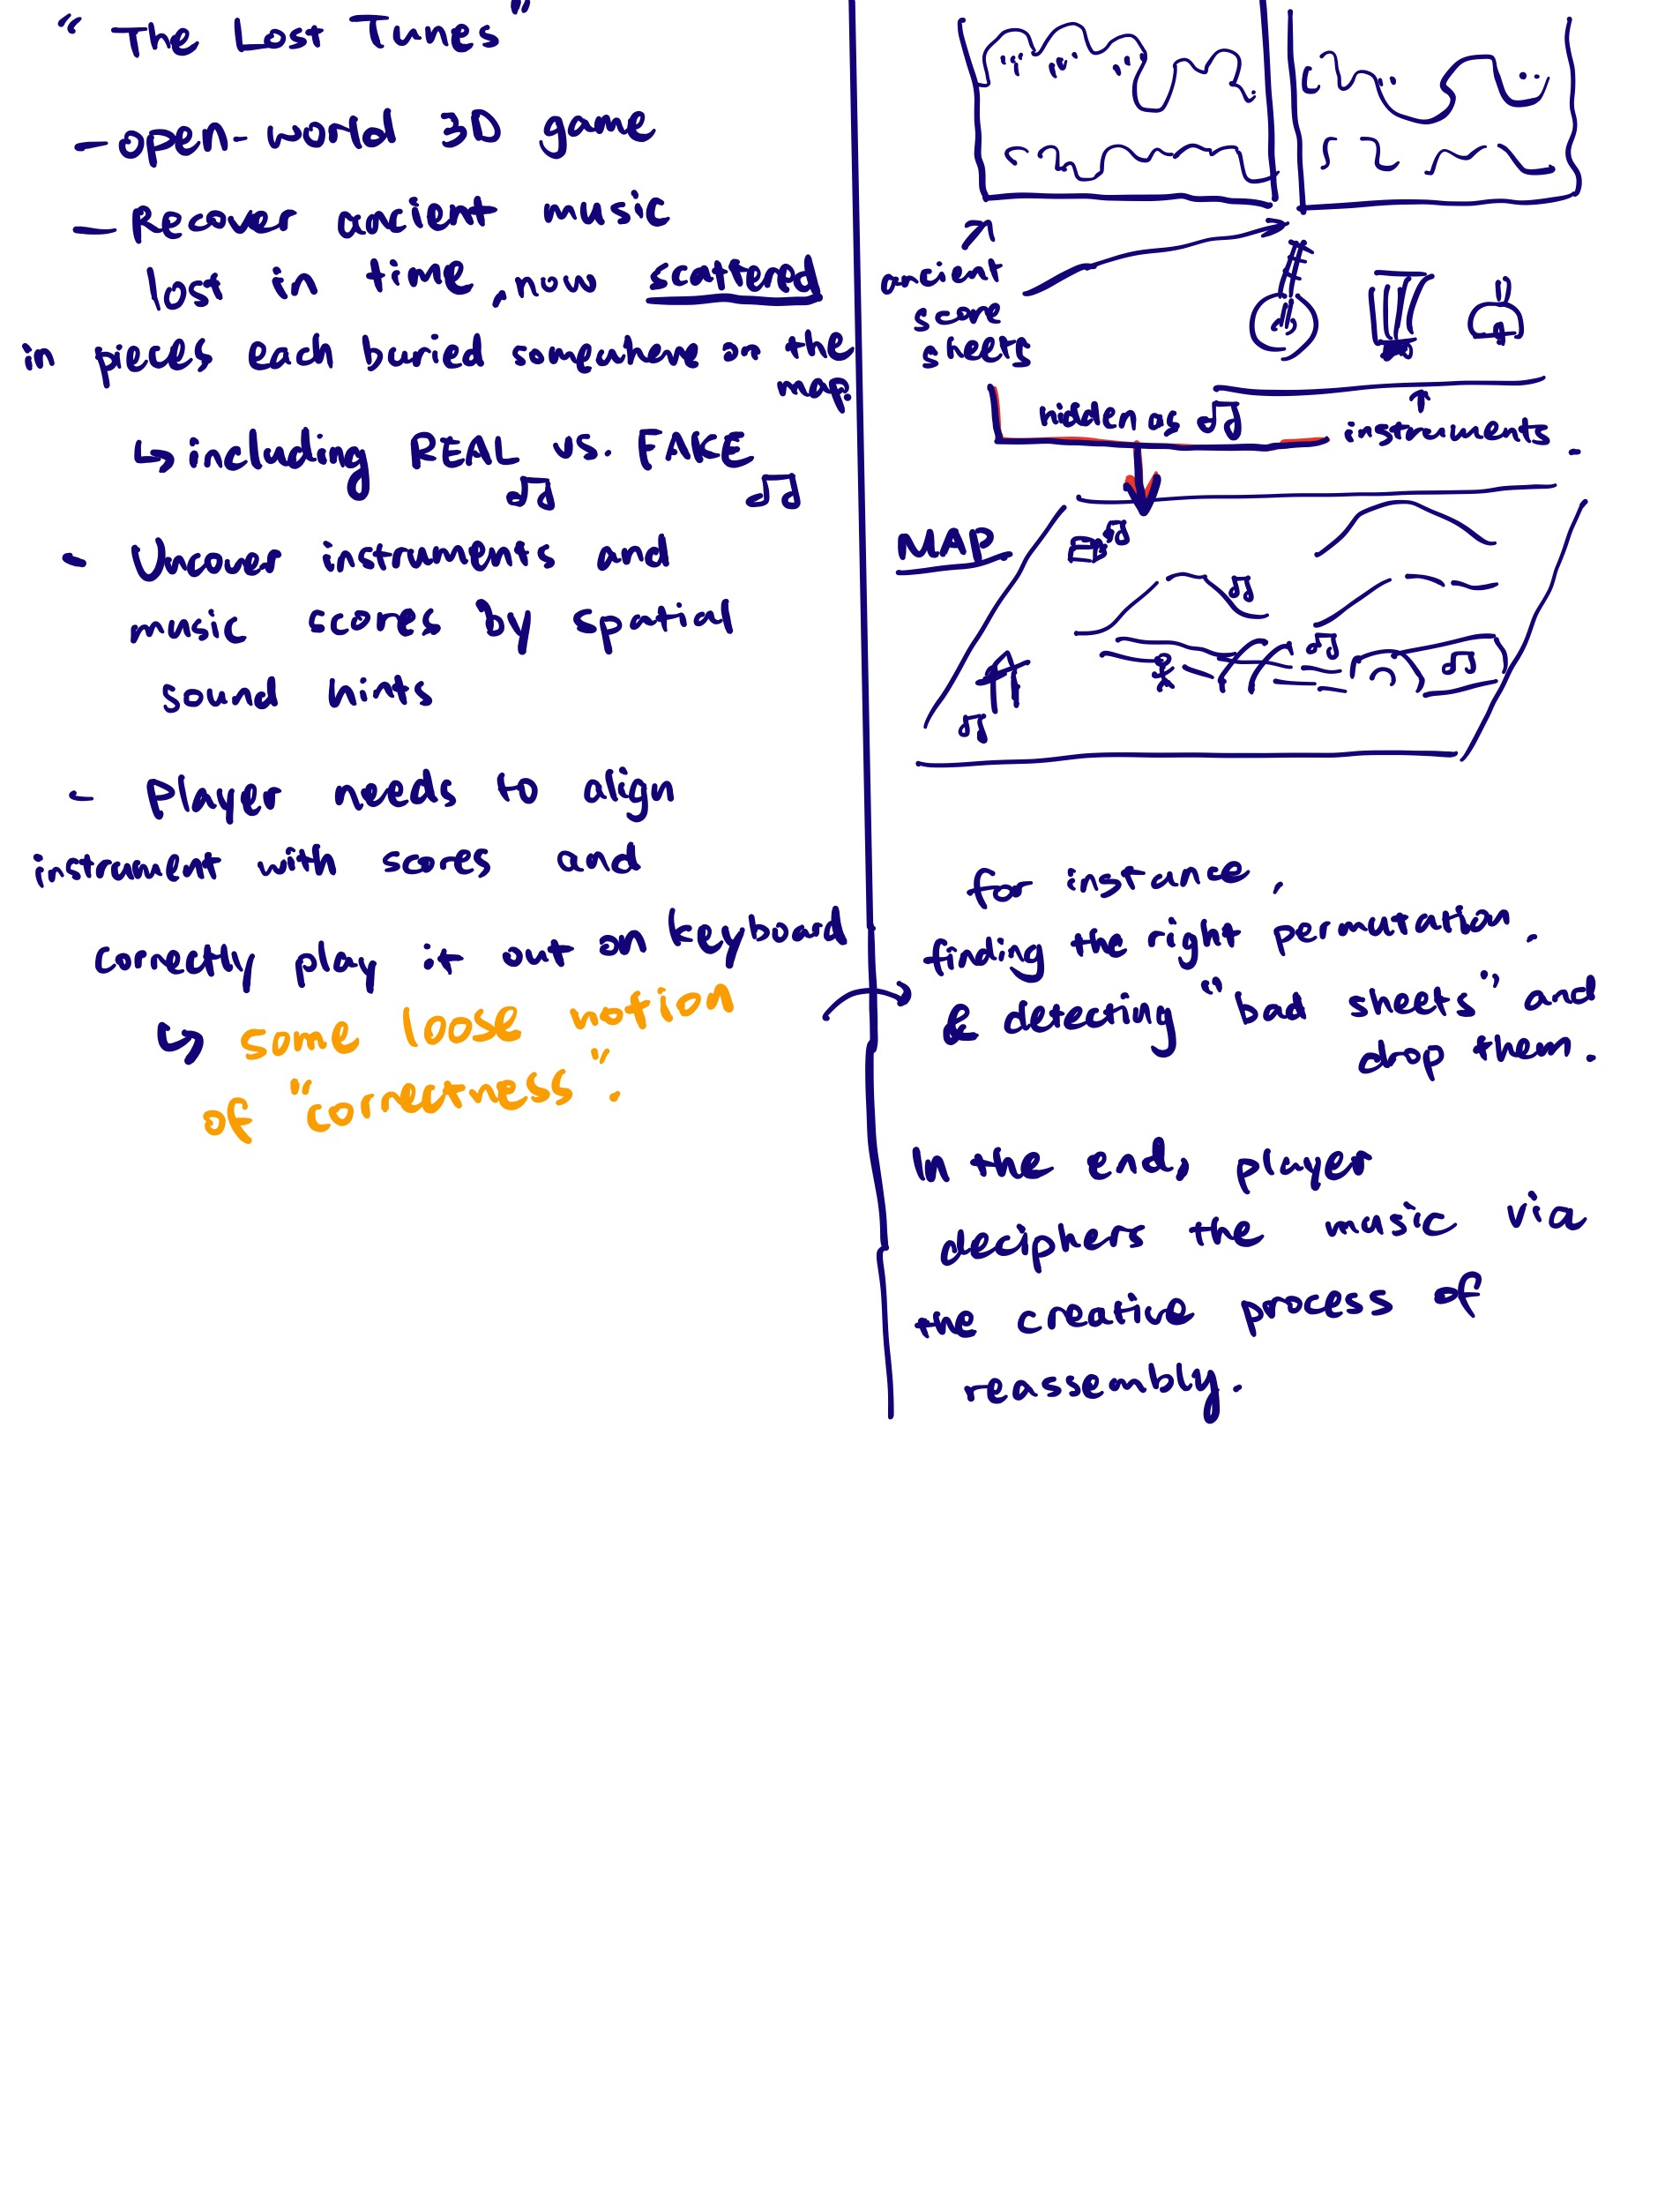 "The Lost Tunes"
- open-world 3D game
- Recover ancient music
lost in time, now scattered
in pieces each buried somewhere on the
map.
↳ including REAL vs. FAKE
♫ ♫
- Uncover instruments and
music scores by spatial
sound hints
- Player needs to align
instrument with scores and
correctly play it out on keyboard
↳ some loose notion
of "correctness".
ancient
score
sheets
hidden as ♫
instruments.
MAP
for instance,
finding the right permutation.
& detecting "bad sheets" and
drop them.
In the end, player
deciphers the music via
the creative process of
reassembly.